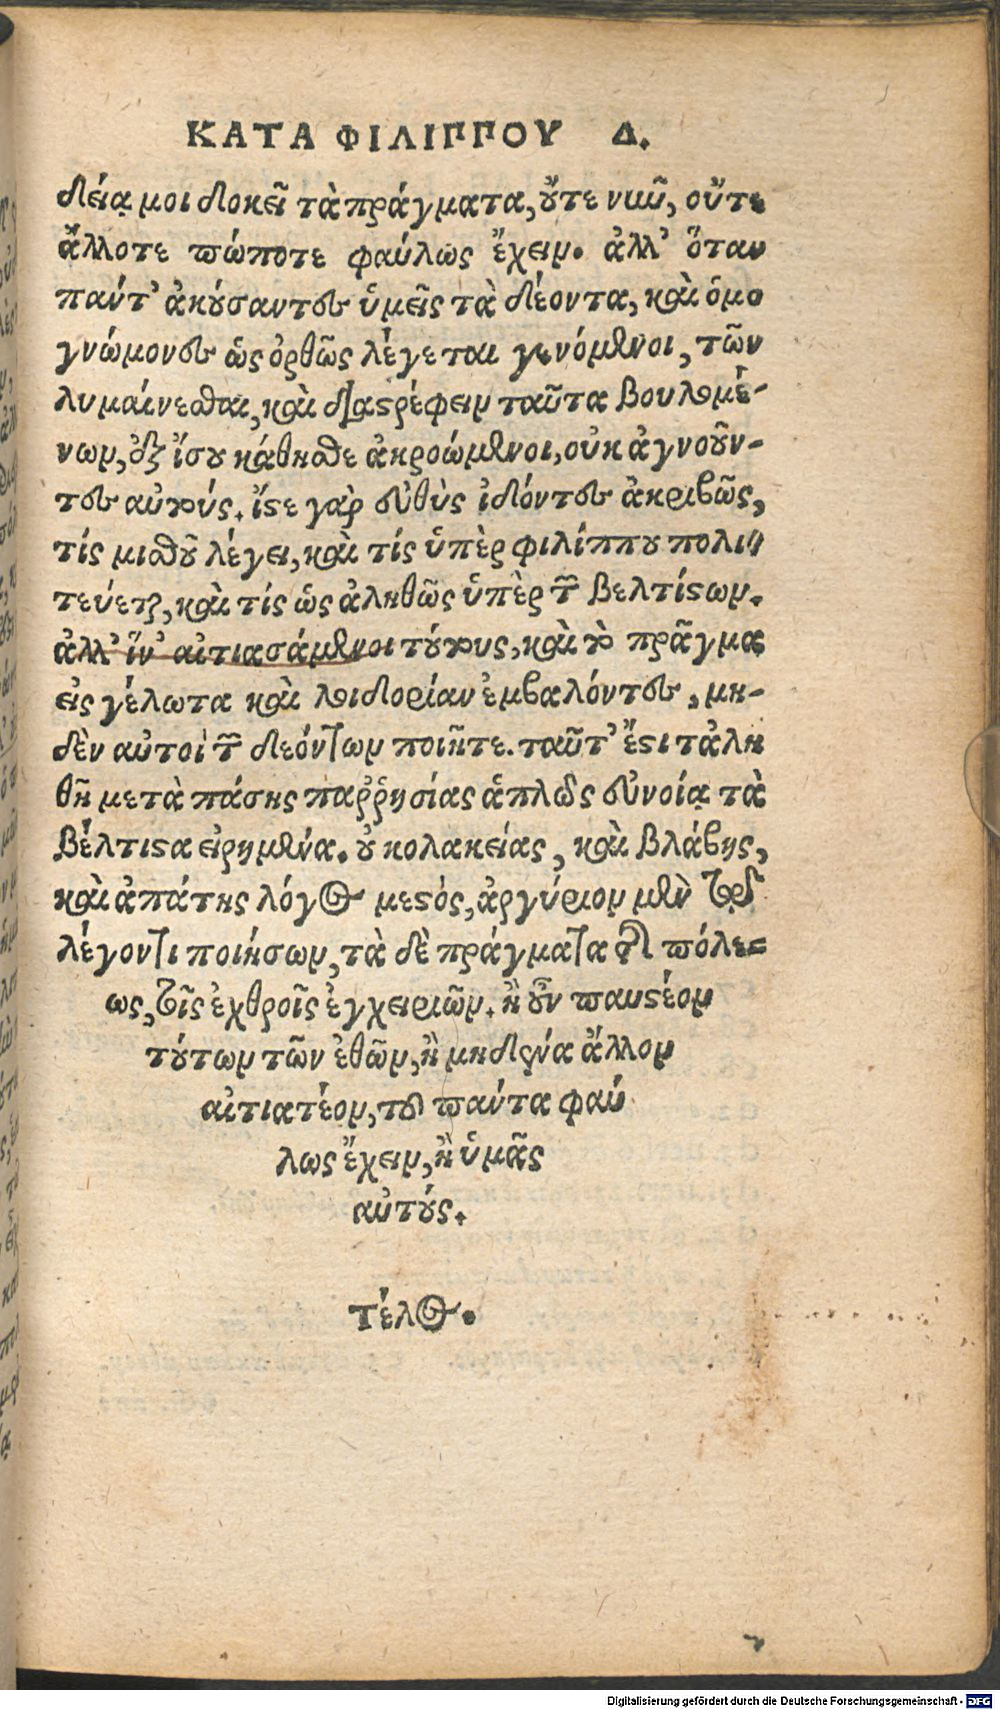 ΚΑΤΑ ΦΙΛΙΠΠΟΥ Δ.
δείᾳ μοι δοκεῖ τὰ πράγματα, οὔτε νῦν, οὔτε
ἄλλοτε πώποτε φαύλως ἔχειν. ἀλλ' ὅταν
πάντ' ἀκούσαντες ὑμεῖς τὰ δέοντα, καὶ ὁμο
γνώμονες ὡς ὀρθῶς λέγεται γενόμενοι, τῶν
λυμαίνεσθαι, καὶ διαστρέφειν ταῦτα βουλομέ-
νων, ἐξ ἴσου κάθησθε ἀκροώμενοι, οὐκ ἀγνοοῦν-
τες αὐτούς. ἴστε γὰρ εὐθὺς ἰδόντες ἀκριβῶς,
τίς μισθοῦ λέγει, καὶ τίς ὑπὲρ φιλίππου πολι
τεύεται, καὶ τίς ὡς ἀληθῶς ὑπὲρ τῶν βελτίστων.
ἀλλ' ἵν' αἰτιασάμενοι τούτους, καὶ τὸ πρᾶγμα
εἰς γέλωτα καὶ λοιδορίαν ἐμβαλόντες, μη-
δὲν αὐτοὶ τῶν δεόντων ποιῆτε. ταῦτ' ἔστι τἀλη
θῆ μετὰ πάσης παῤῥησίας ἁπλῶς εὐνοίᾳ τὰ
βέλτιστα εἰρημένα. οὐ κολακείας, καὶ βλάβης,
καὶ ἀπάτης λόγος μεστός, ἀργύριον μὲν τῷ
λέγοντι ποιήσων, τὰ δὲ πράγματα τῆς πόλε-
ως, τοῖς ἐχθροῖς ἐγχειριῶν. ἢ οὖν παυστέον
τούτων τῶν ἐθῶν, ἢ μηδένα ἄλλον
αἰτιατέον, τοῦ πάντα φαύ
λως ἔχειν, ἢ ὑμᾶς
αὐτούς.
τέλος.
Digitalisierung gefördert durch die Deutsche Forschungsgemeinschaft - DFG